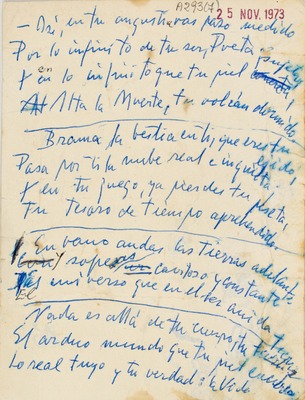 A29307
25 NOV. 1973
- Así, en tu angustia vas paso medido
Por lo infinito de tu ser, Poeta
Y en lo infinito que tu piel sujeta
Alta la Muerte, tu volcán dormido
Brama la bestia en ti, que eres tu
Pasa por ti la nube real e inquieta
Y en tu juego, ya pierdes tu
Tu tesoro de tiempo aprehendido
En vano andas las tierras adelante
y constante
universo que en el ser anida
Nada es allá de tu cuerpo, tu
El arduo mundo que tu piel
Lo real tuyo y tu verdad: la Vida